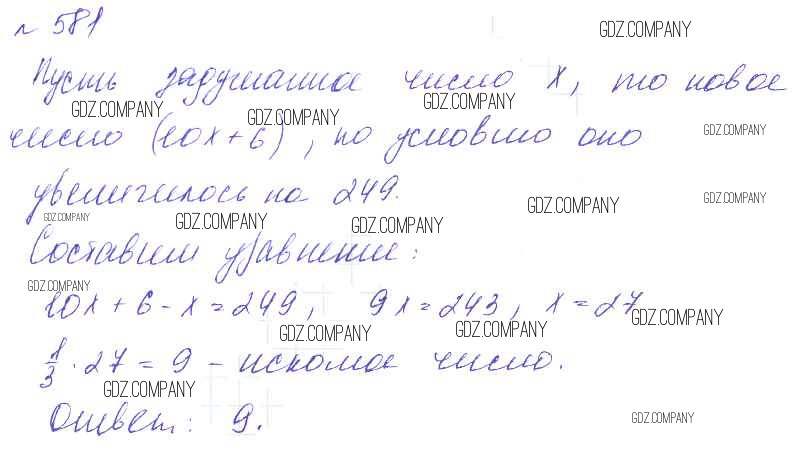 № 581
GDZ.COMPANY
Пусть задуманное число x, то новое
GDZ.COMPANY GDZ.COMPANY GDZ.COMPANY
число (10x+6), по условию оно
GDZ.COMPANY
увеличилось на 249.
GDZ.COMPANY GDZ.COMPANY
GDZ.COMPANY GDZ.COMPANY GDZ.COMPANY
Составим уравнение:
GDZ.COMPANY
10x + 6 - x = 249, 9x = 243, x = 27
GDZ.COMPANY
GDZ.COMPANY GDZ.COMPANY
1/3 · 27 = 9 - искомое число.
GDZ.COMPANY
Ответ: 9.
GDZ.COMPANY